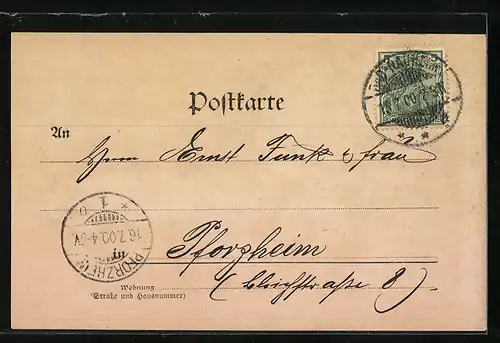 Postkarte
An
Herrn Ernst Funk & Frau
Pforzheim
in
Wohnung
(Straße und Hausnummer)
(Bleichstraße 8)
PFORZHEIM
16.7.00.4-5V.